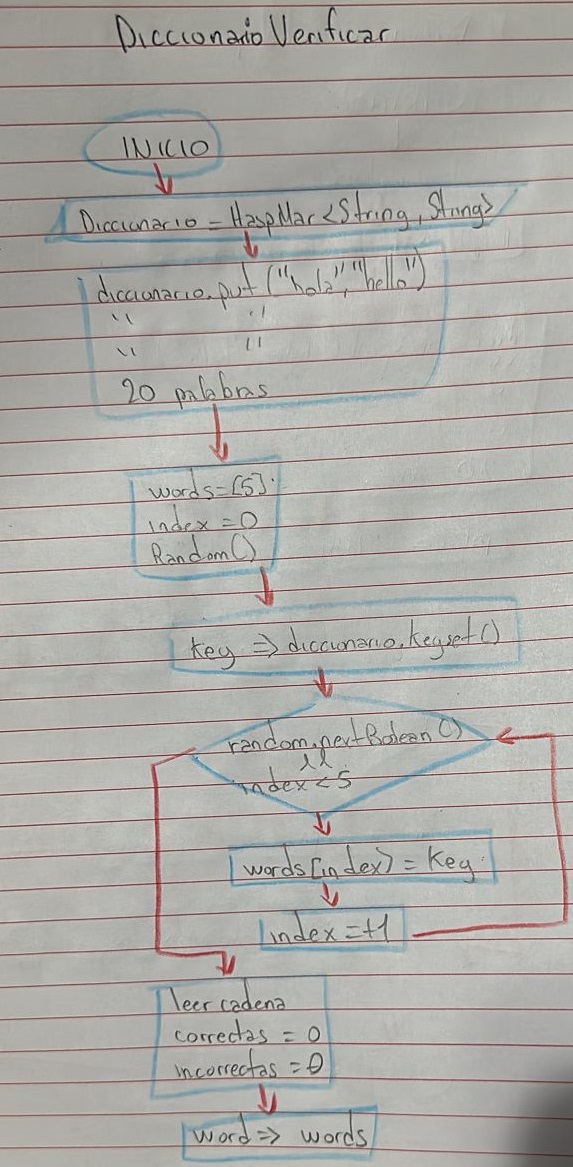 Diccionario Verificar
INICIO
Diccionario = HaspMar <String, String>
diccionario.put ("hola", "hello")
" "
" "
20 palabras
words=[5];
index = 0
Random()
key => diccionario.keyset()
random.nextBolean()
&&
index < 5
words[index] = key.
index =+1
leer cadena
correctas = 0
incorrectas = 0
word => words